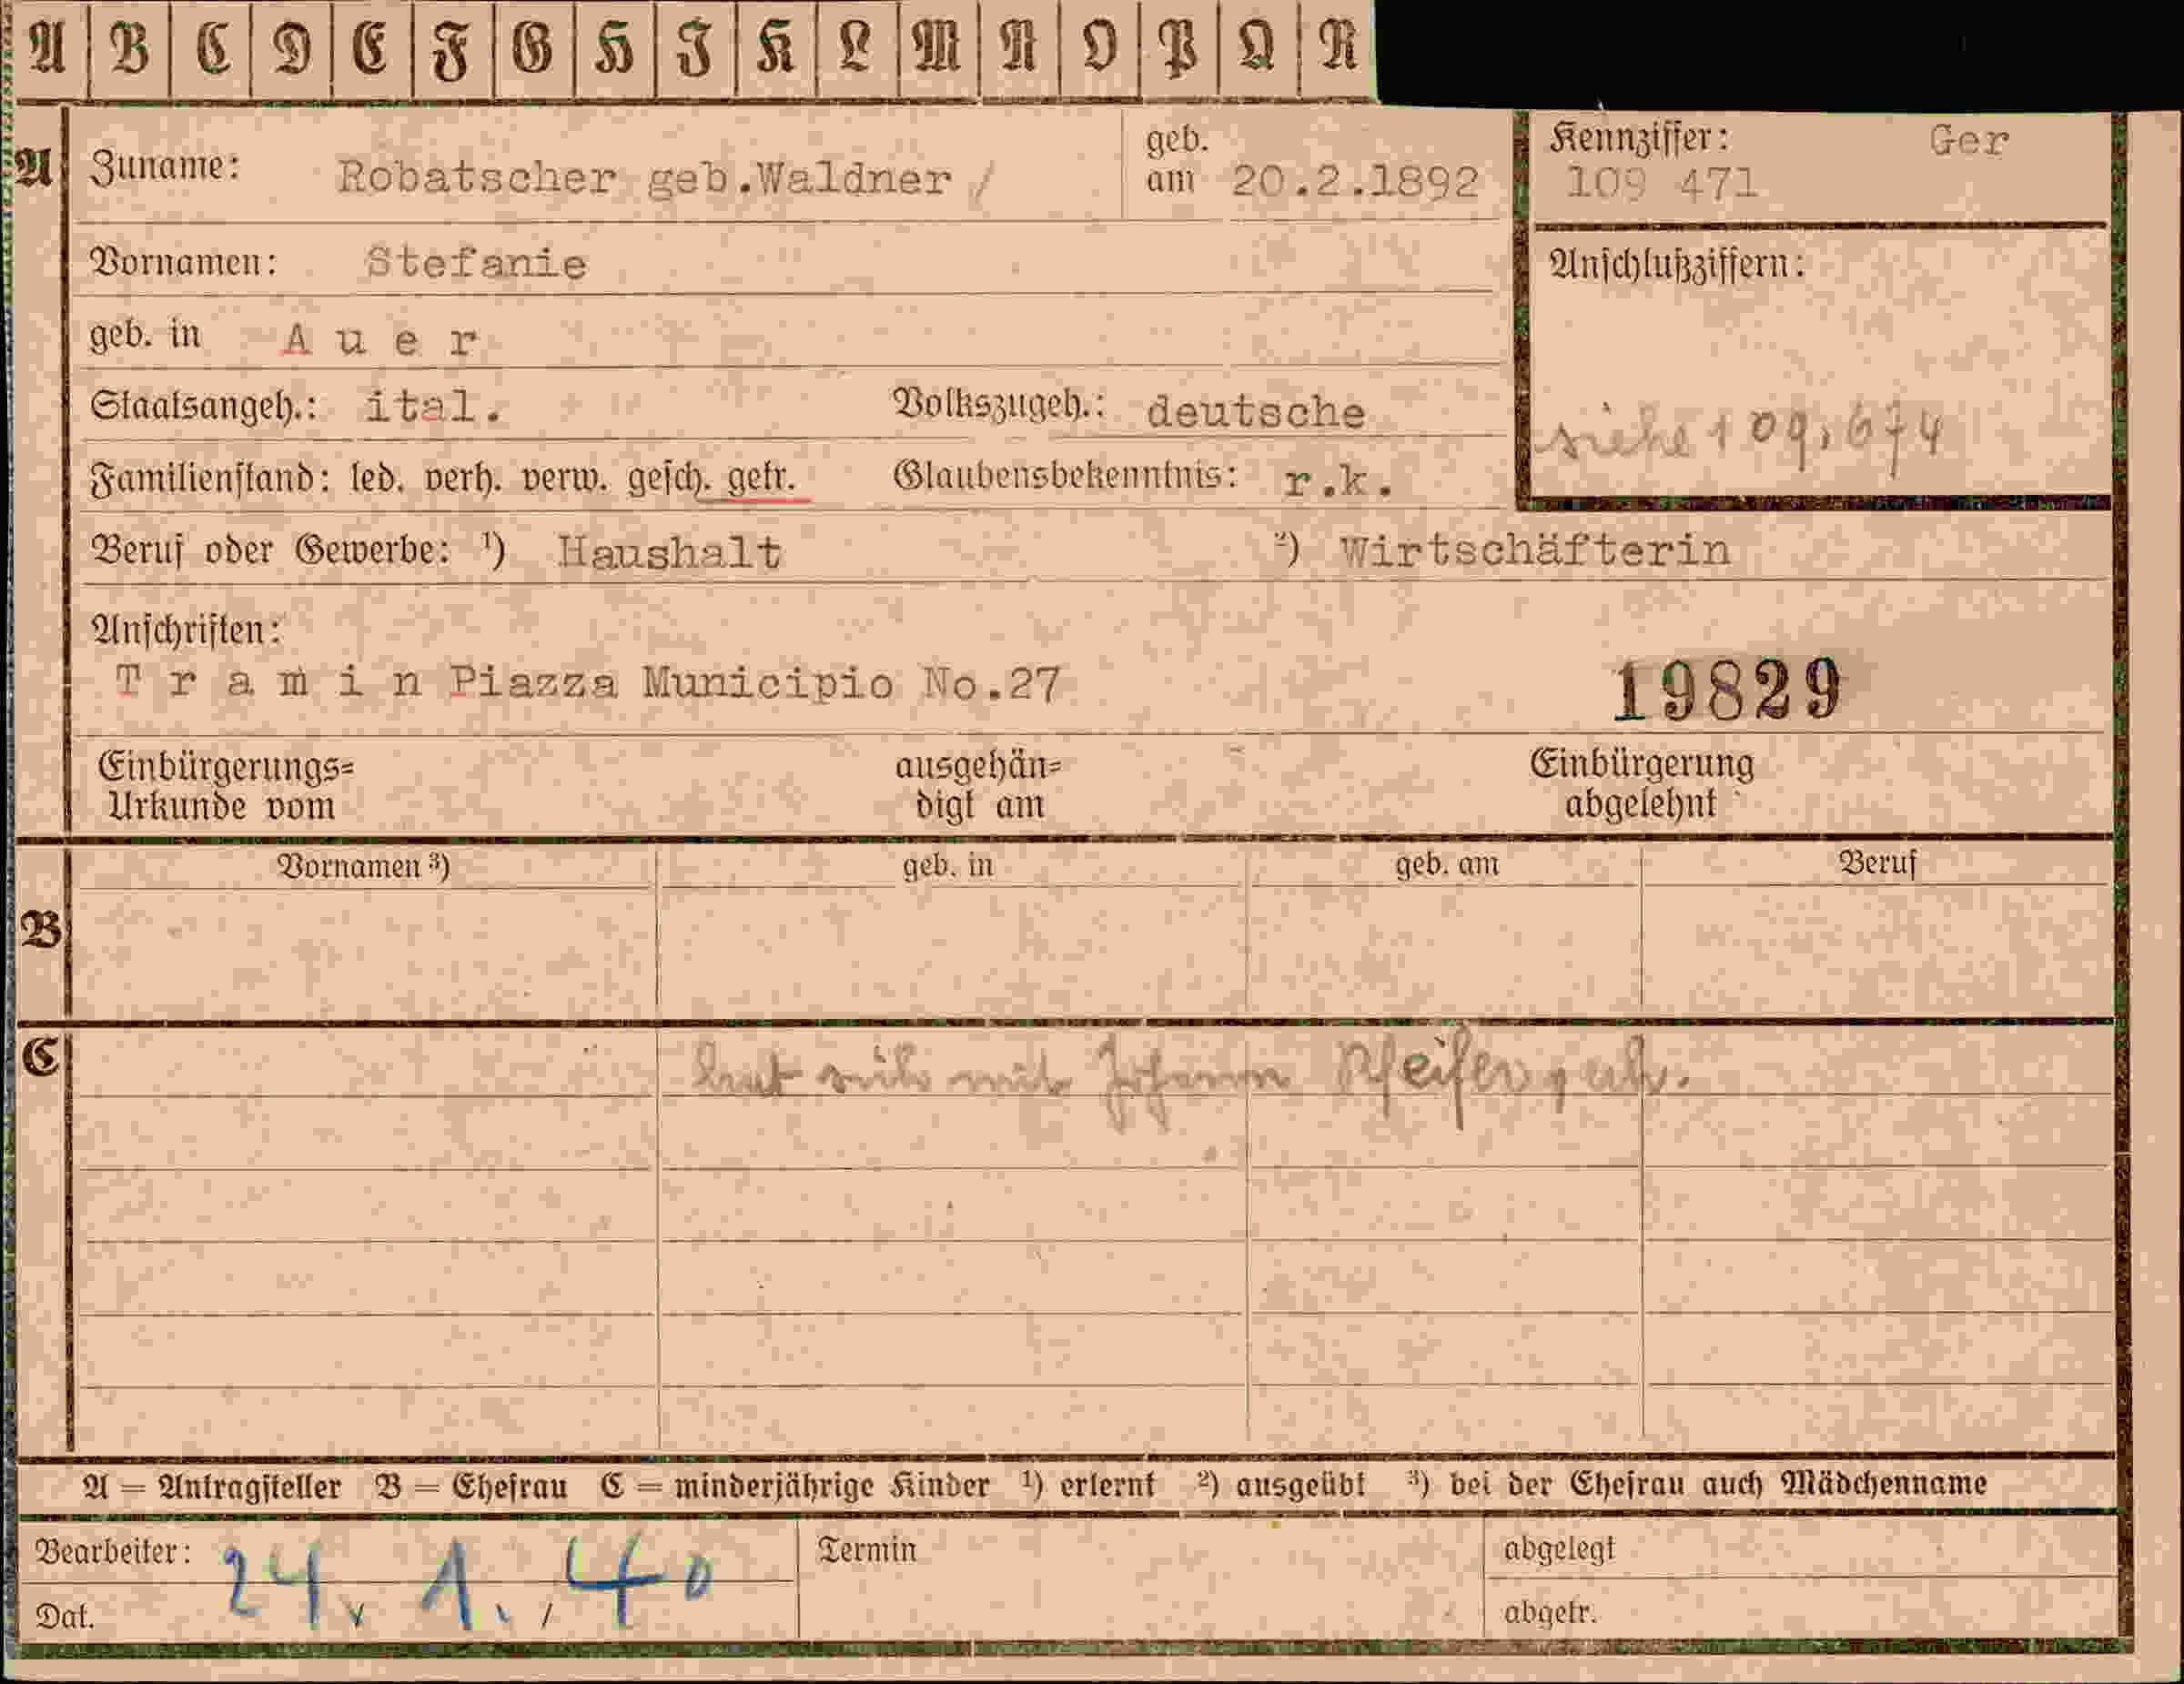 A B C D E F G H I K L M N O P Q R
A Zuname: Robatscher geb.Waldner / geb. am 20.2.1892
Kennziffer: Ger
109 471
Vornamen: Stefanie
Anschlußziffern:
geb. in A u e r
Staatsangeh.: ital. Volkszugeh.: deutsche
siehe 109,674
Familienstand: led. verh. verw. gesch. getr. Glaubensbekenntnis: r.k.
Beruf oder Gewerbe: ¹) Haushalt ²) Wirtschäfterin
Anschriften:
T r a m i n Piazza Municipio No.27
19829
Einbürgerungs= ausgehän= Einbürgerung
Urkunde vom digt am abgelehnt
Vornamen ³) geb. in geb. am Beruf
B
C hat sich mit Johann Pfeifer
A = Antragsteller B = Ehefrau C = minderjährige Kinder ¹) erlernt ²) ausgeübt ³) bei der Ehefrau auch Mädchenname
Bearbeiter: Termin abgelegt
24. 1. / 40
Dat. abgetr.